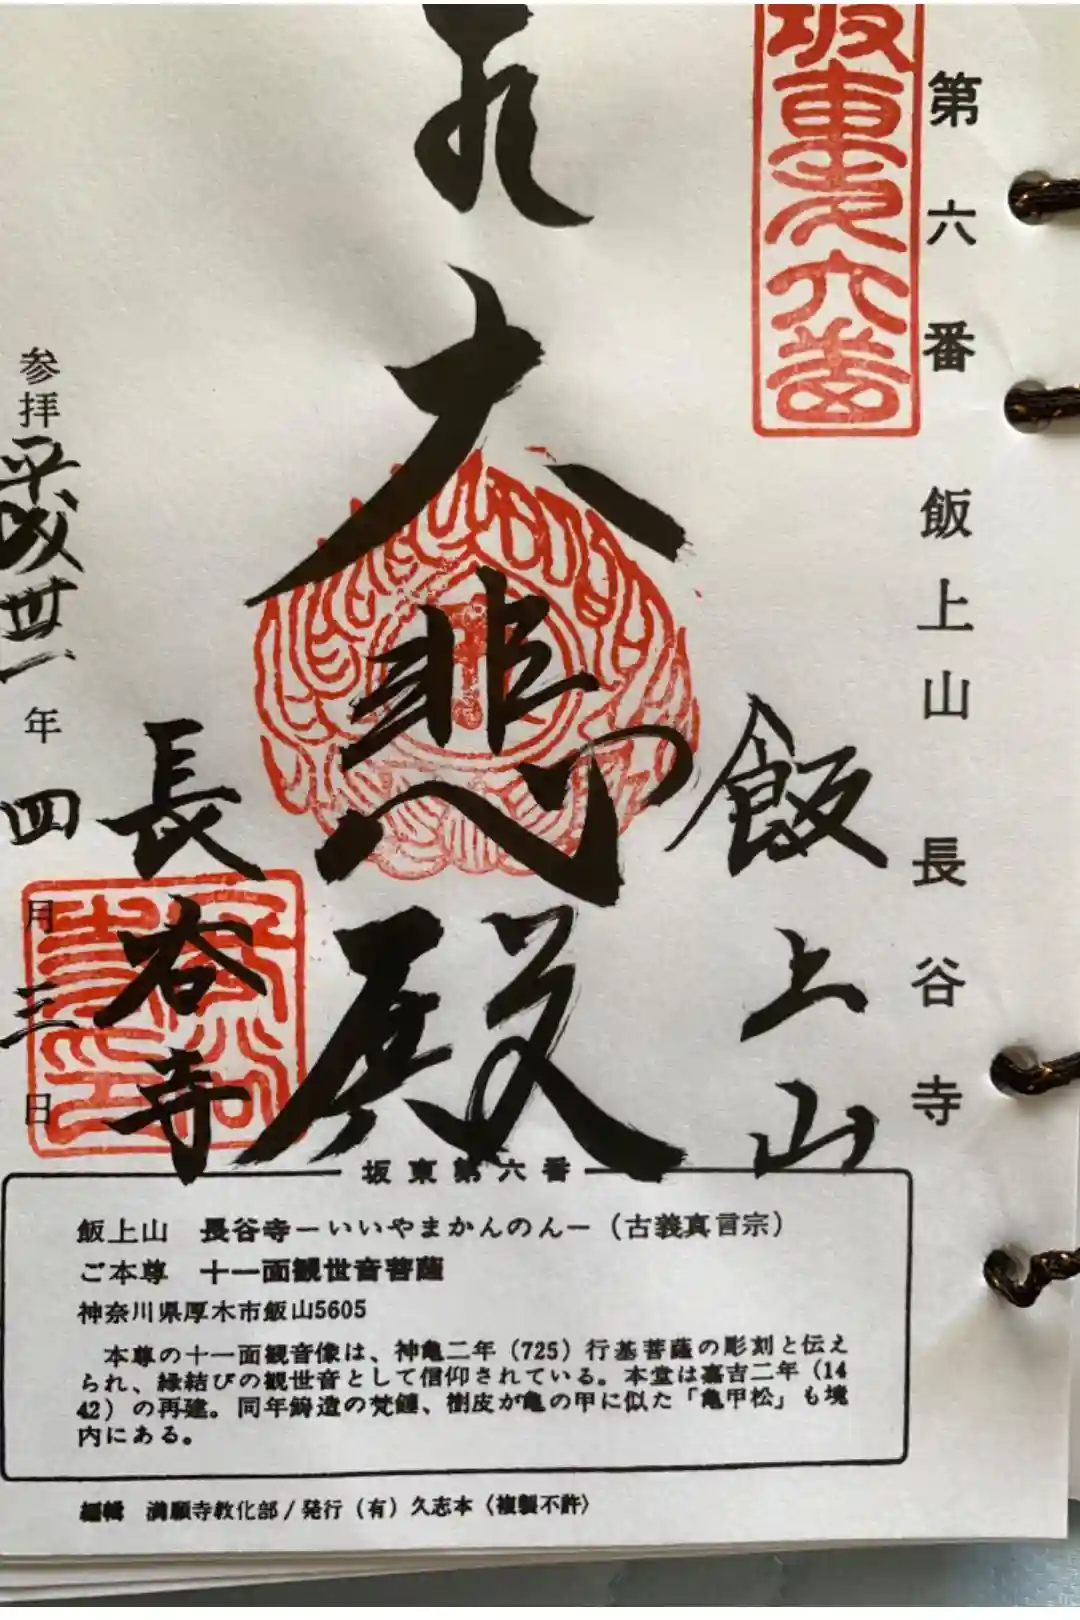 第六番 飯上山 長谷寺
坂東第六番
飯上山
大悲殿
長谷寺
参拝平成卅一年四月三日
坂東第六番
飯上山 長谷寺ーいいやまかんのんー（古義真言宗）
ご本尊 十一面観世音菩薩
神奈川県厚木市飯山5605
本尊の十一面観音像は、神亀二年（725）行基菩薩の彫刻と伝え
られ、縁結びの観世音として信仰されている。本堂は嘉吉二年（14
42）の再建。同年鋳造の梵鐘、樹皮が亀の甲に似た「亀甲松」も境
内にある。
編輯 満願寺教化部/発行（有）久志本〈複製不許〉